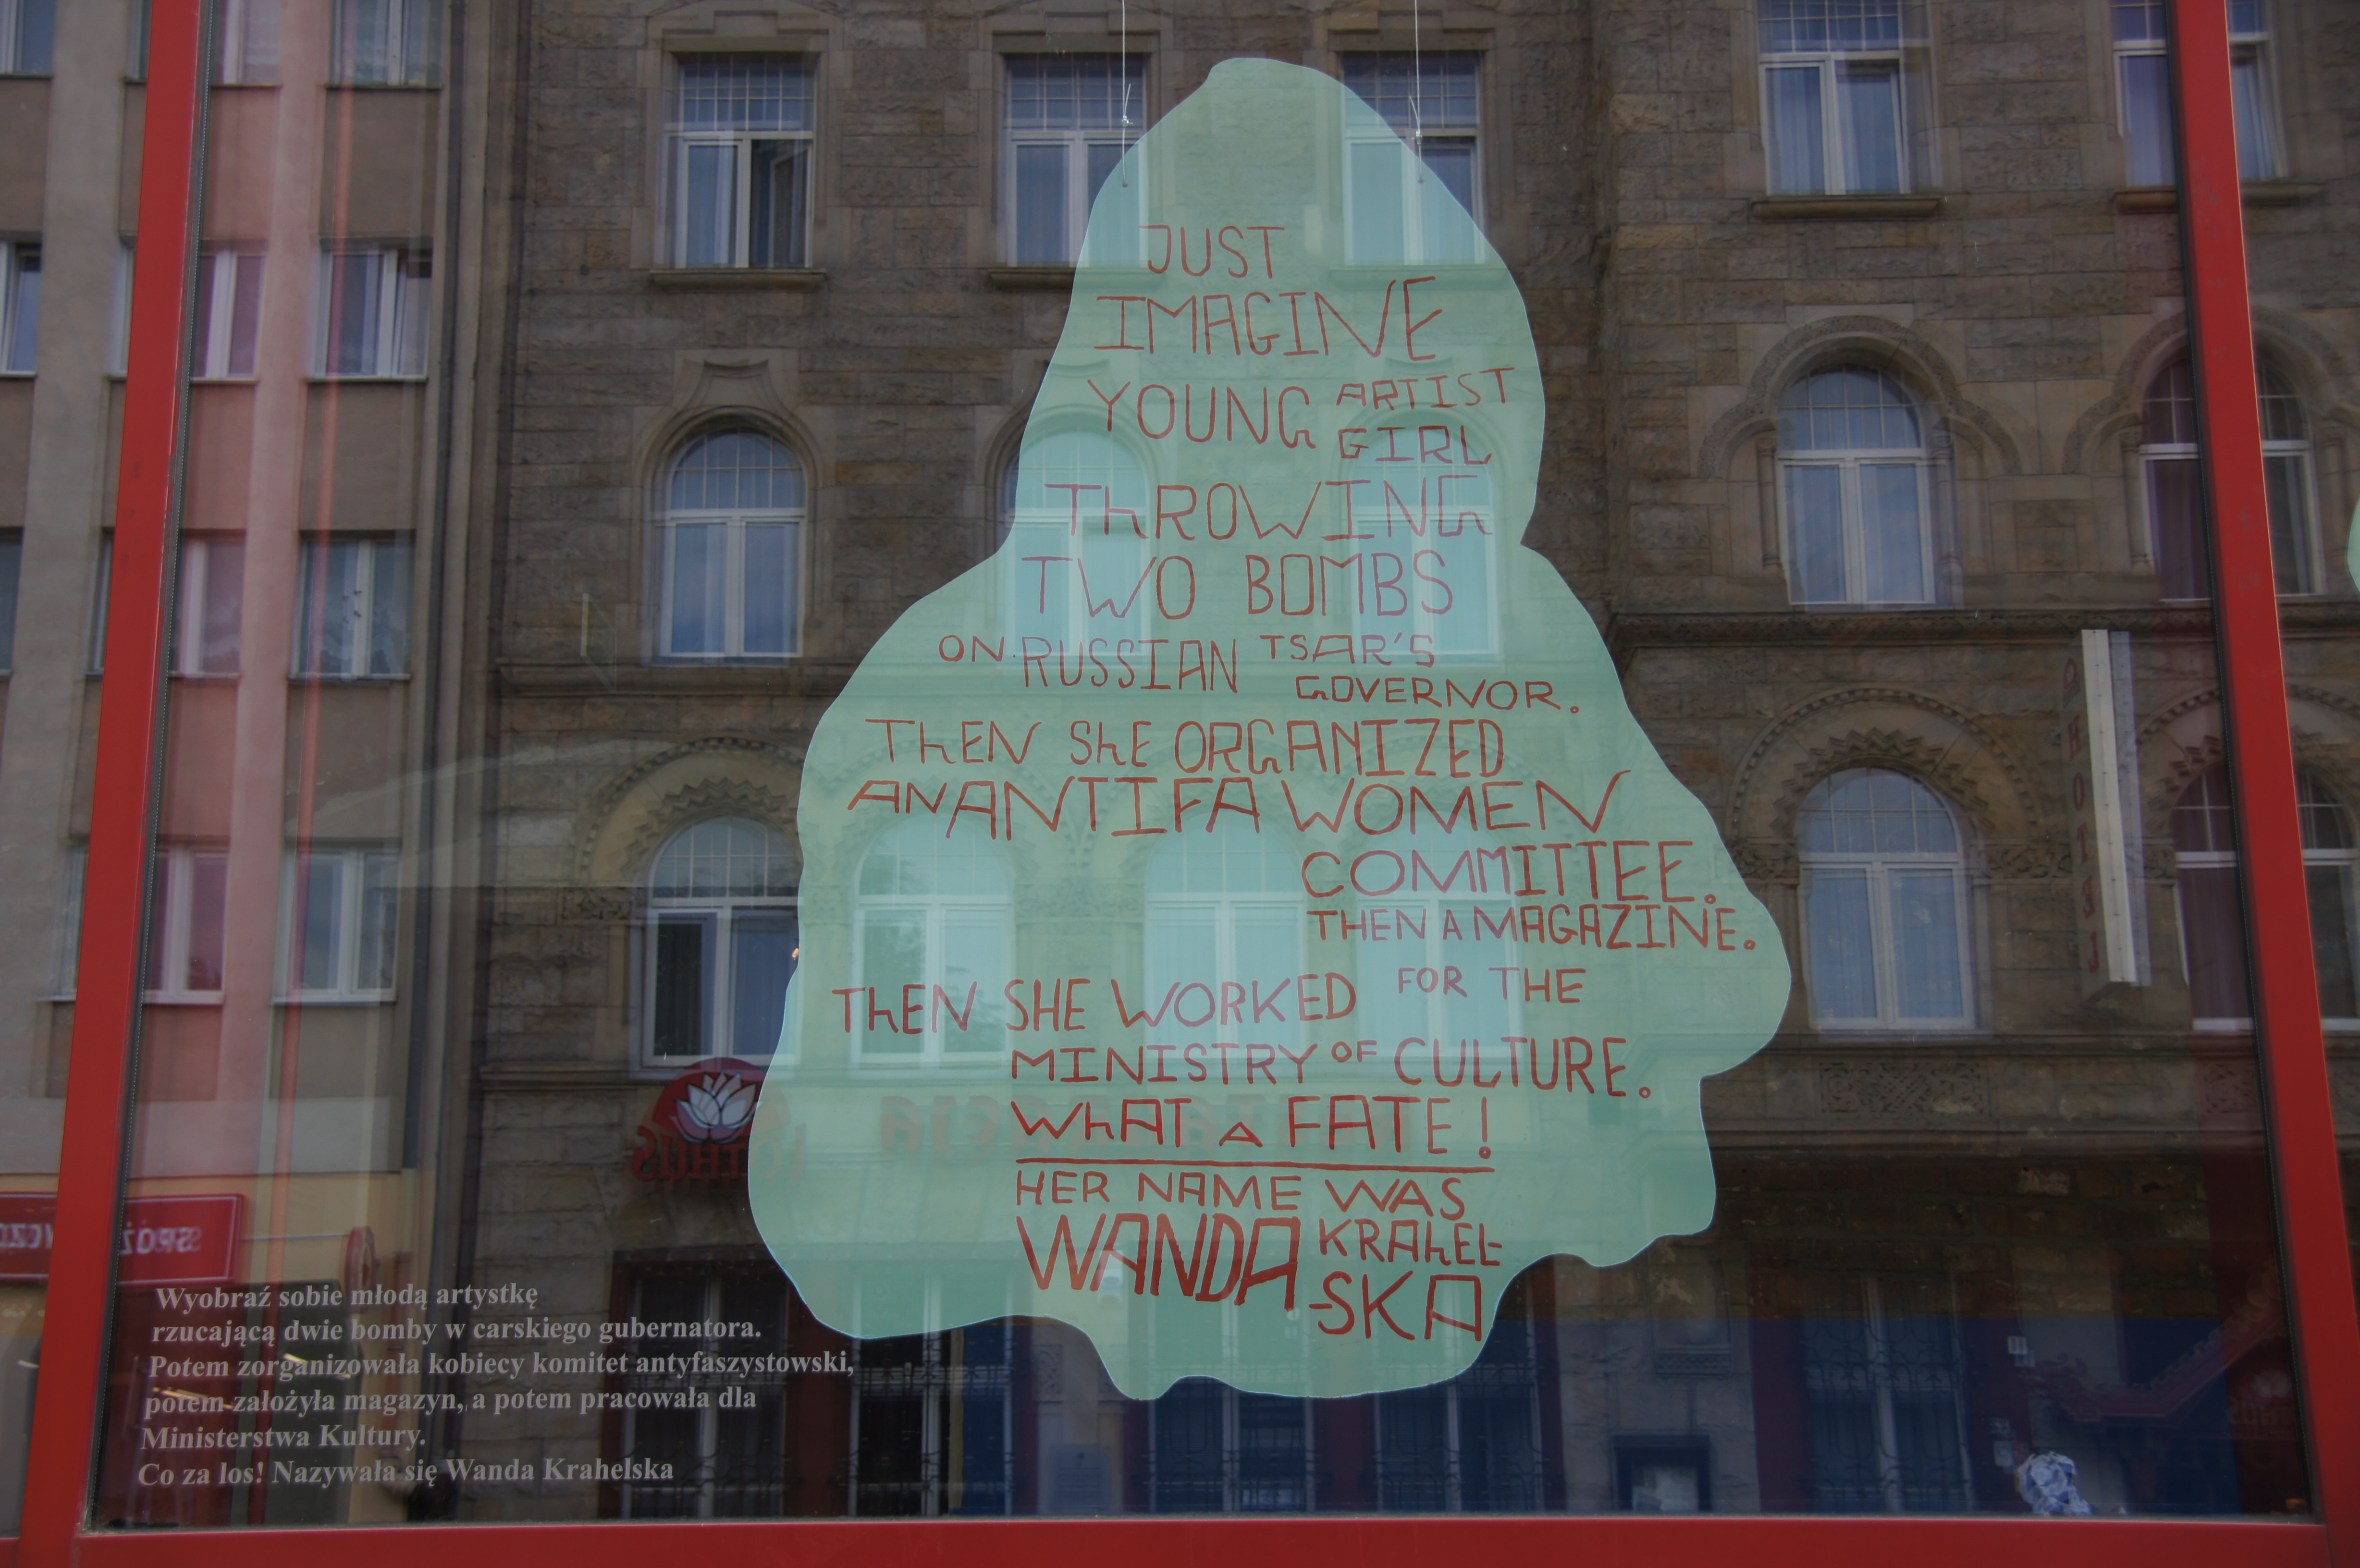 JUST
IMAGINE
YOUNG ARTIST
GIRL
ThROWING
TWO BOMBS
ON RUSSIAN TSAR'S
GOVERNOR.
ThEN ShE ORGANIZED
AN ANTIFA WOMEN
COMMITTEE.
THEN A MAGAZINE.
ThEN SHE WORKED FOR THE
MINISTRY OF CULTURE.
WhAT A FATE!
HER NAME WAS
WANDA KRAhEL
-SKA
Wyobraź sobie młodą artystkę
rzucającą dwie bomby w carskiego gubernatora.
Potem zorganizowała kobiecy komitet antyfaszystowski,
potem założyła magazyn, a potem pracowała dla
Ministerstwa Kultury.
Co za los! Nazywała się Wanda Krahelska